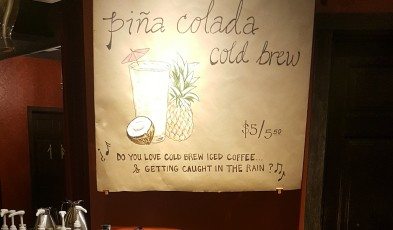 piña colada
cold brew
$5/5.50
DO YOU LOVE COLD BREW ICED COFFEE...
& GETTING CAUGHT IN THE RAIN?